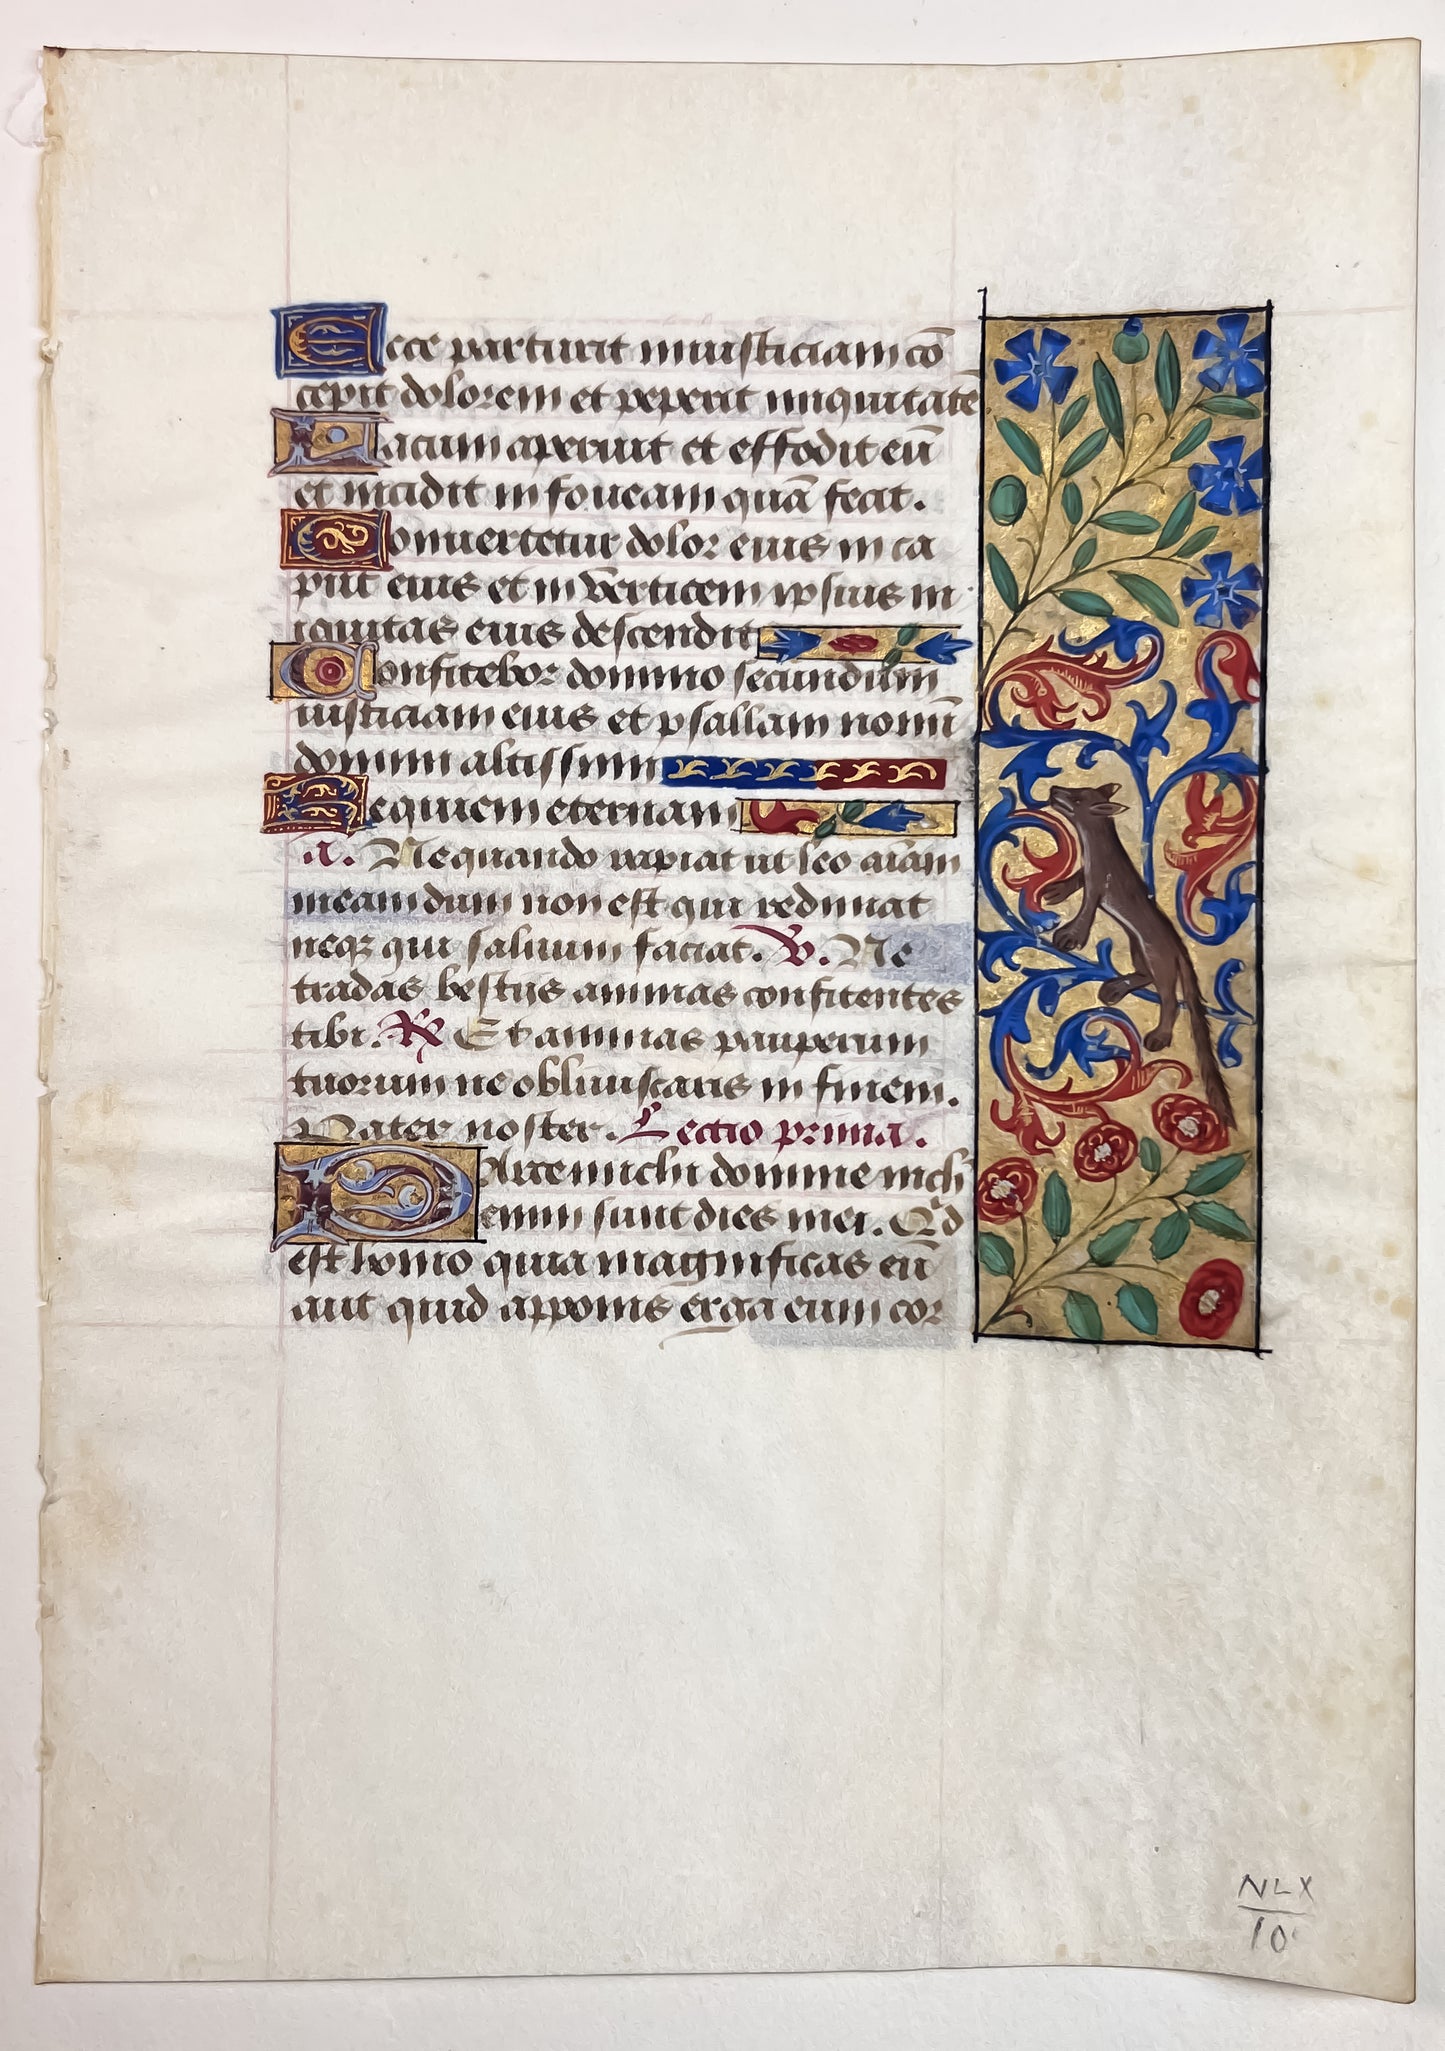 Ecce parturit iniusticiam cō
cepit dolorem et peperit iniquitatē
Lacum aperuit et effodit eū
et incidit in foueam quā fecit.
Conuertetur dolor eius in ca
put eius et in verticem ipsius in
iquitas eius descendit
Confitebor domino secundum
iusticiam eius et psallam nomī
domini altissimi
Requiem eternam
a. Ne quando rapiat ut leo aīam
meam dum non est qui redimat
neqꝫ qui saluum faciat. V. Ne
tradas bestijs animas confitentes
tibi. R Et animas pauperum
tuorum ne obliuiscaris in finem.
Pater noster. Lectio prima.
PArce michi domine nich
enim sunt dies mei. Qͥd
est homo quia magnificas eū
aut quid apponis erga eum cor
NLX
10